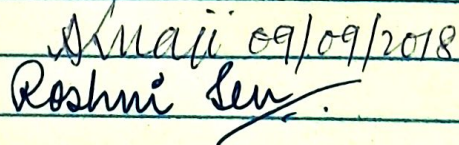 09/09/2018
Roshni Sen